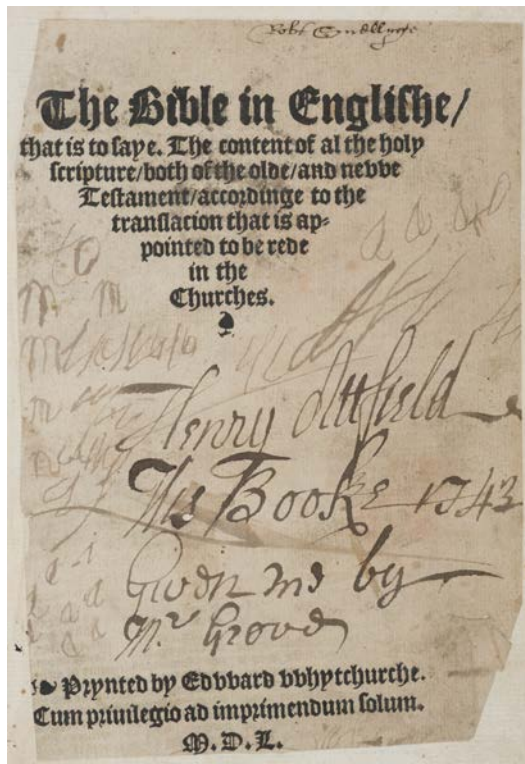 The Bible in Englishe/
that is to saye. The content of al the holy
scripture/both of the olde/and nevve
Testament/accordinge to the
translacion that is ap-
pointed to be rede
in the
Churches.
Henry Attfield
His Booke 1743
Given me by
Mr Grove
Prynted by Edvvard vvhytchurche.
Cum priuilegio ad imprimendum solum.
M.D.L.